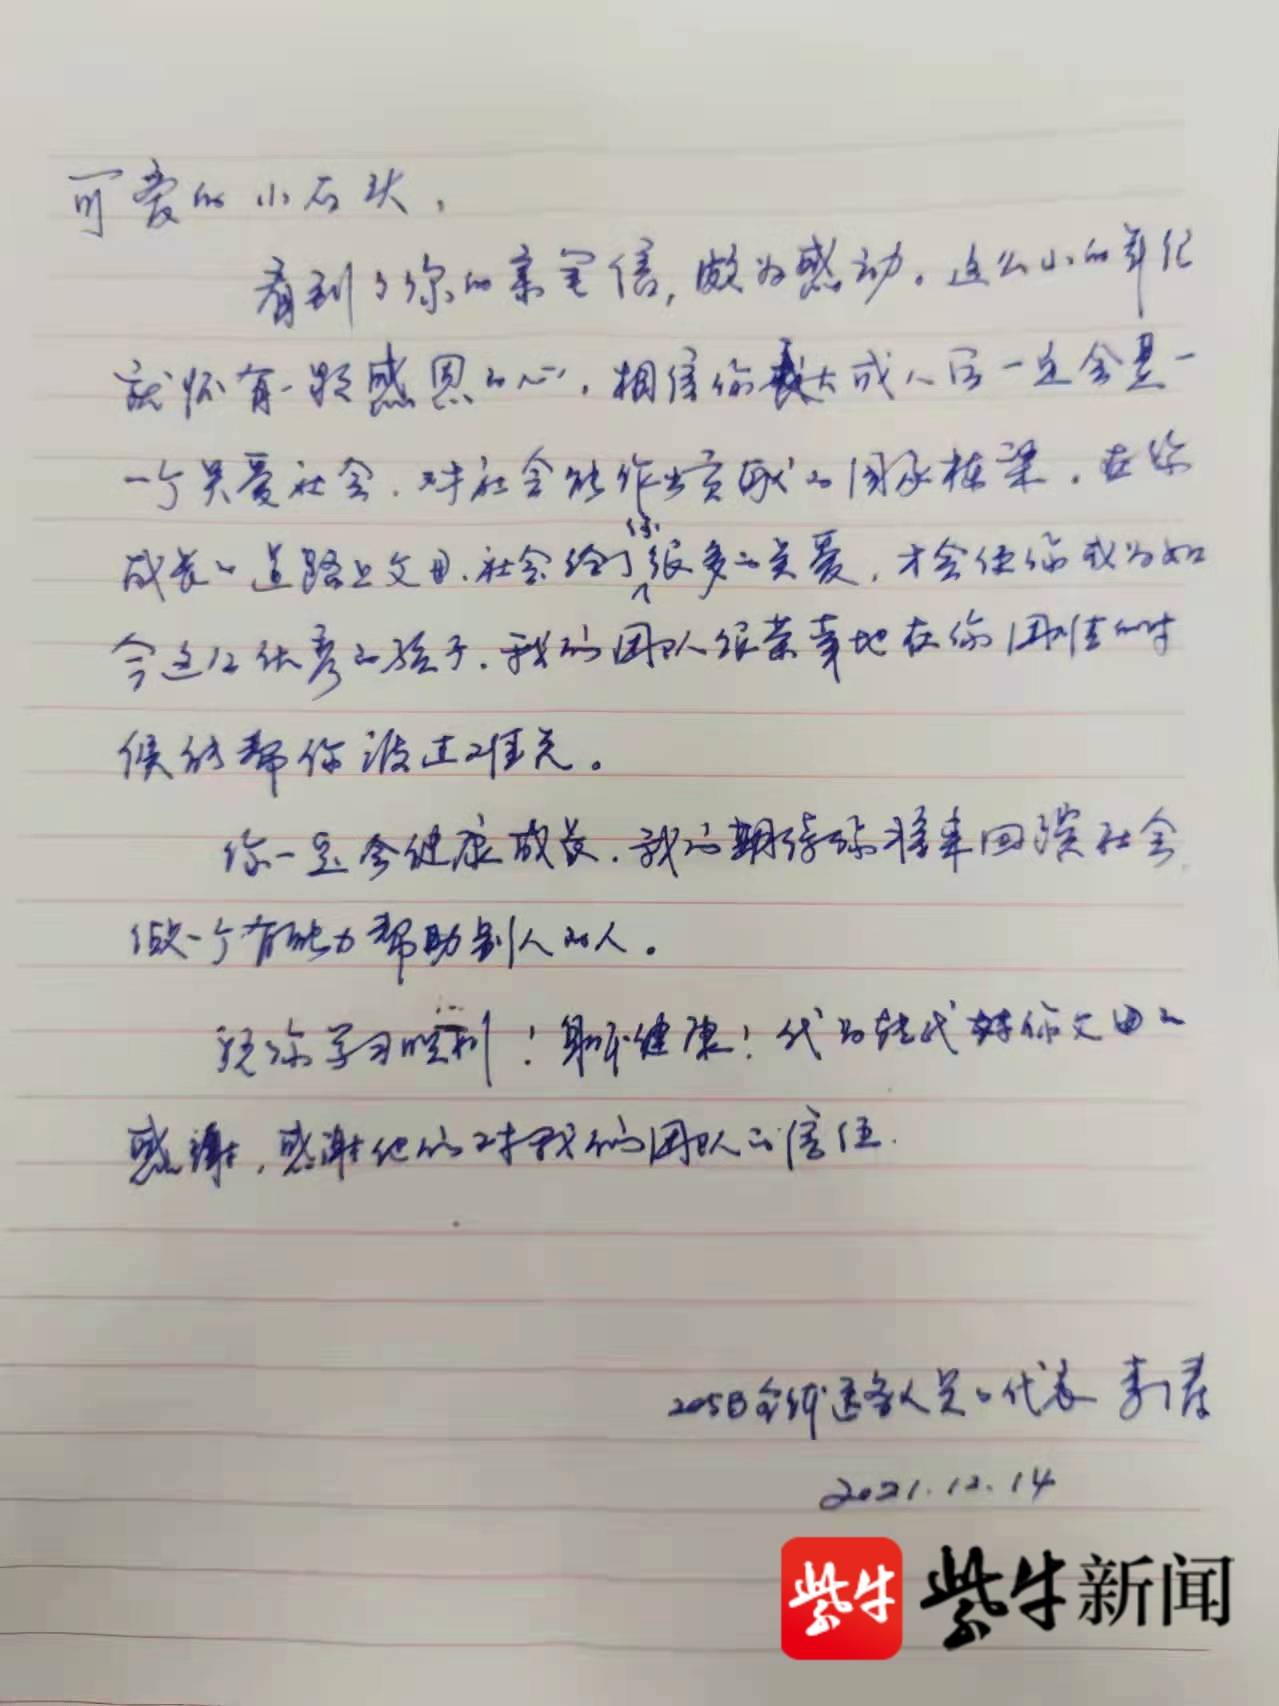 可爱的小石头，
看到了你的亲笔信，颇为感动。这么小的年纪
就怀有一颗感恩的心，相信你长大成人后一定会是一
一个关爱社会、对社会能作出贡献的国家栋梁。在你
成长的道路上父母、社会给了你很多的关爱，才会使你成为如
今这么优秀的孩子。我们团队很荣幸地在你困难的时
候能帮你渡过难关。
你一定会健康成长，我们期待你将来回馈社会，
做一个有能力帮助别人的人。
祝你学习顺利！身体健康！代为转代对你父母的
感谢，感谢他们对我们团队的信任。
205B全体医务人员的代表 李
2021.12.14
紫牛 紫牛新闻